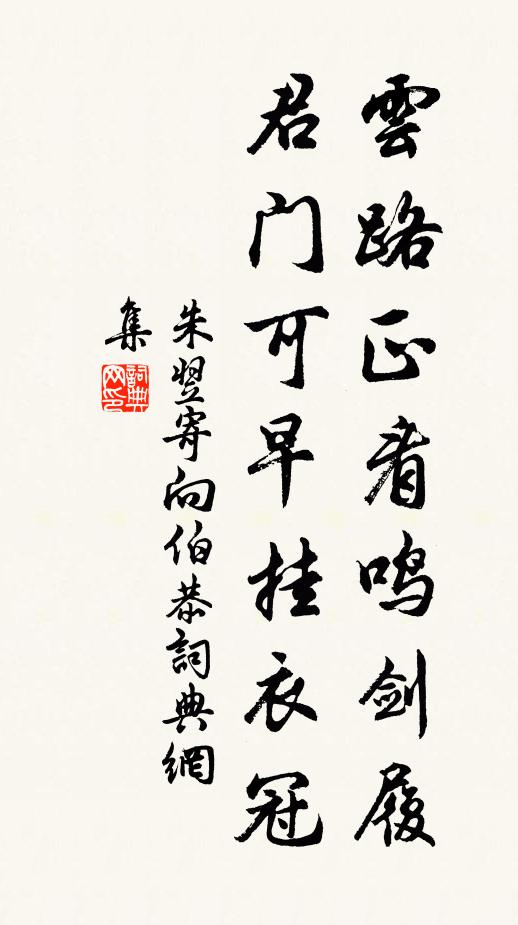 雲路正看鳴劍履
君門可早挂衣冠
朱翌寄向伯恭詞典網
集
詞典網印